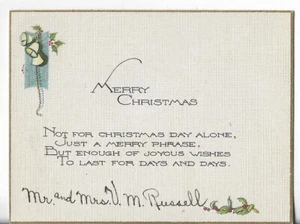 MERRY
CHRISTMAS
NOT FOR CHRISTMAS DAY ALONE,
JUST A MERRY PHRASE,
BUT ENOUGH OF JOYOUS WISHES
TO LAST FOR DAYS AND DAYS.
Mr. and Mrs. V. M. Russell